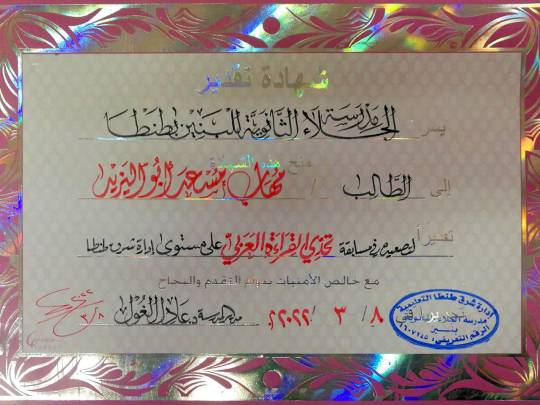 شهادة تقدير
يسر مدرسة الجلاء الثانوية للبنين بطنطا
منح هذه الشهادة
إلى الطالب / مهاب مسعد أبو اليزيد
تقديراً لتصعيده في مسابقة تحدي القراءة العربي على مستوى إدارة شرق طنطا
مع خالص الأمنيات بدوام التقدم والنجاح
تحريراً في ٨ / ٣ / ٢٠٢٢ مدير المدرسة د. عادل الغول
٣/٨
إدارة شرق طنطا التعليمية
مدرسة الجلاء الثانوية
بنين
الرقم التعريفي: